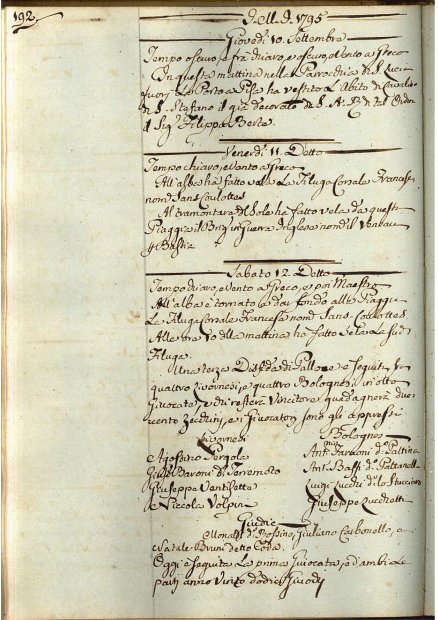 192
D.ell.D. 1795
Giovedì 10. Settembre
Tempo oscuro, e frà chiaro, e oscuro e Vento a Greco
In questa mattina nella Parrocchia di S. Lucia
fuori La Porto a Pisa ha vestito L'Abito di Cavaliere
di S. Stefano il già decorato da S. A. R. di tal Ordine
il Sig. Filippo Berte
Venerdì 11. Detto
Tempo chiaro, e Vento a Greco
All'alba ha fatto vela La Filuga Corsale Francese
nom. Sans Coulottes
Al tramontare del Sole ha fatto vela da questa
Piaggia il Brig. in Guerra Inglese nom. il
p. Bastia
Sabato 12. Detto
Tempo chiaro, e Vento a Greco, e poi Maestro
All'alba è tornato a dar fondo alla Piaggia
La Filuga Corsale Francese nom. Sans-Coulottes
Alle ore della mattina ha fatto vela La sud.
Filuga.
Una terza Disfida di Pallone è seguita fra
quattro Livornesi, e quattro Bolognesi in otto
Giocate, e chi resterà Vincitore guadagnerà due-
cento Zecchini, e i Giuocatori sono gli appresso
Livornesi Bolognesi
Agostino Pergola Ant. d.
Baroni d. Terremoto Ant. Bassi d.
Giuseppe Luigi d. lo
e Niccola Volpini Giuseppe
Giudici
di Rossino, Giuliano Carbonello, e
Natale Bruni detto Coda.
Oggi è seguita La prima Giuocata, e d'ambi Le
parti anno Vinto dodici Giuochi